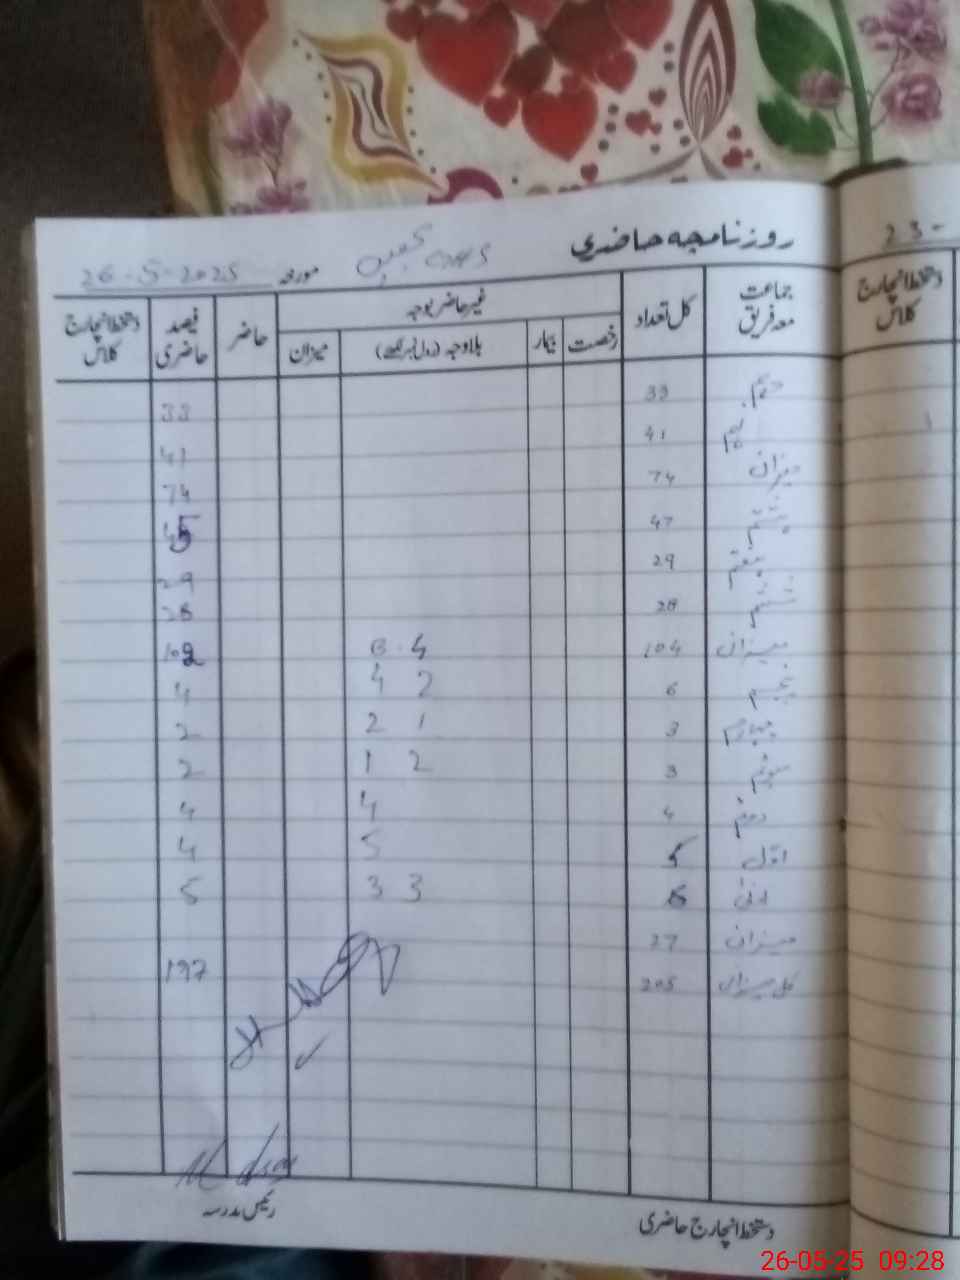 روزنامچہ حاضری
GHS
مورخہ 26-5-2025
جماعت معہ فریق | کل تعداد | غیر حاضر بوجہ | حاضر | فیصد حاضری | دستخط انچارج کلاس
رخصت | بیمار | بلاوجہ (رول نمبر لکھیے) | میزان
دہم 33 33
نہم 41 41
میزان 74 74
ہشتم 47 45
ہفتم 29 29
ششم 28 28
میزان 104 102
پنجم 6 4 2 4
چہارم 3 2 1 2
سوئم 3 1 2 2
دوئم 4 4 4
اول 5 5 4
ادنیٰ 6 3 3 5
میزان 27
کل میزان 205 197
رئیس مدرسہ
دستخط انچارج حاضری
23-
دستخط انچارج کلاس
26-05-25 09:28